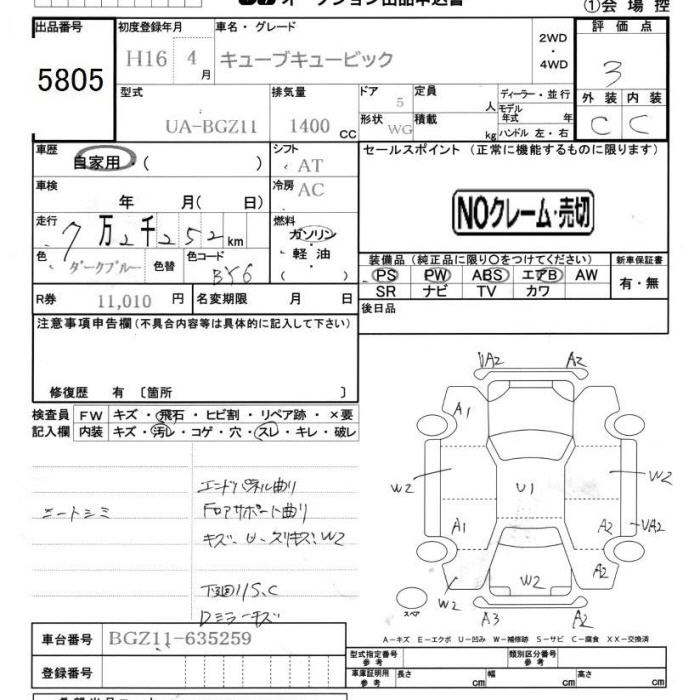 オークション出品申込書
①会場控
出品番号
5805
初度登録年月
H16 4月
車名・グレード
キューブキュービック
2WD
・
4WD
評価点
3
型式
UA-BGZ11
排気量
1400 CC
ドア
5
形状
WG
定員
人
積載
kg
ディーラー・並行
モデル年式 年
ハンドル 左・右
外装 内装
C C
車歴
自家用・( )
シフト
AT
セールスポイント (正常に機能するものに限ります)
NOクレーム・売切
車検
年 月( 日)
冷房
AC
走行
7万2千252km
燃料
ガソリン
・
軽油
( )
色
ダークブルー
色替
色コード
BY6
装備品(純正品に限り〇をつけてください)
PS PW ABS エアB AW
SR ナビ TV カワ
新車保証書
有・無
R券 11,010 円
名変期限 月 日
後日品
注意事項申告欄(不具合内容等は具体的に記入して下さい)
修復歴 有 〔箇所 〕
検査員 FW キズ・飛石・ヒビ割・リペア跡・×要
記入欄 内装 キズ・汚レ・コゲ・穴・スレ・キレ・破レ
シートシミ
エンドパネル曲り
Fロアサポート曲り
キズ、U、スリキズ、W2
下回りS、C
Dミラーキズ
UA2 A2
A1
W2 U1 W2
A1 A2 UA2
W2 W2 A2
スペア
A3 A2
A-キズ E-エクボ U-凹み W-補修跡 S-サビ C-腐食 XX-交換済
車台番号 BGZ11-635259
登録番号
型式指定番号 参考
類別区分番号 参考
車庫証明用 参考 長さ cm 幅 cm 高さ cm